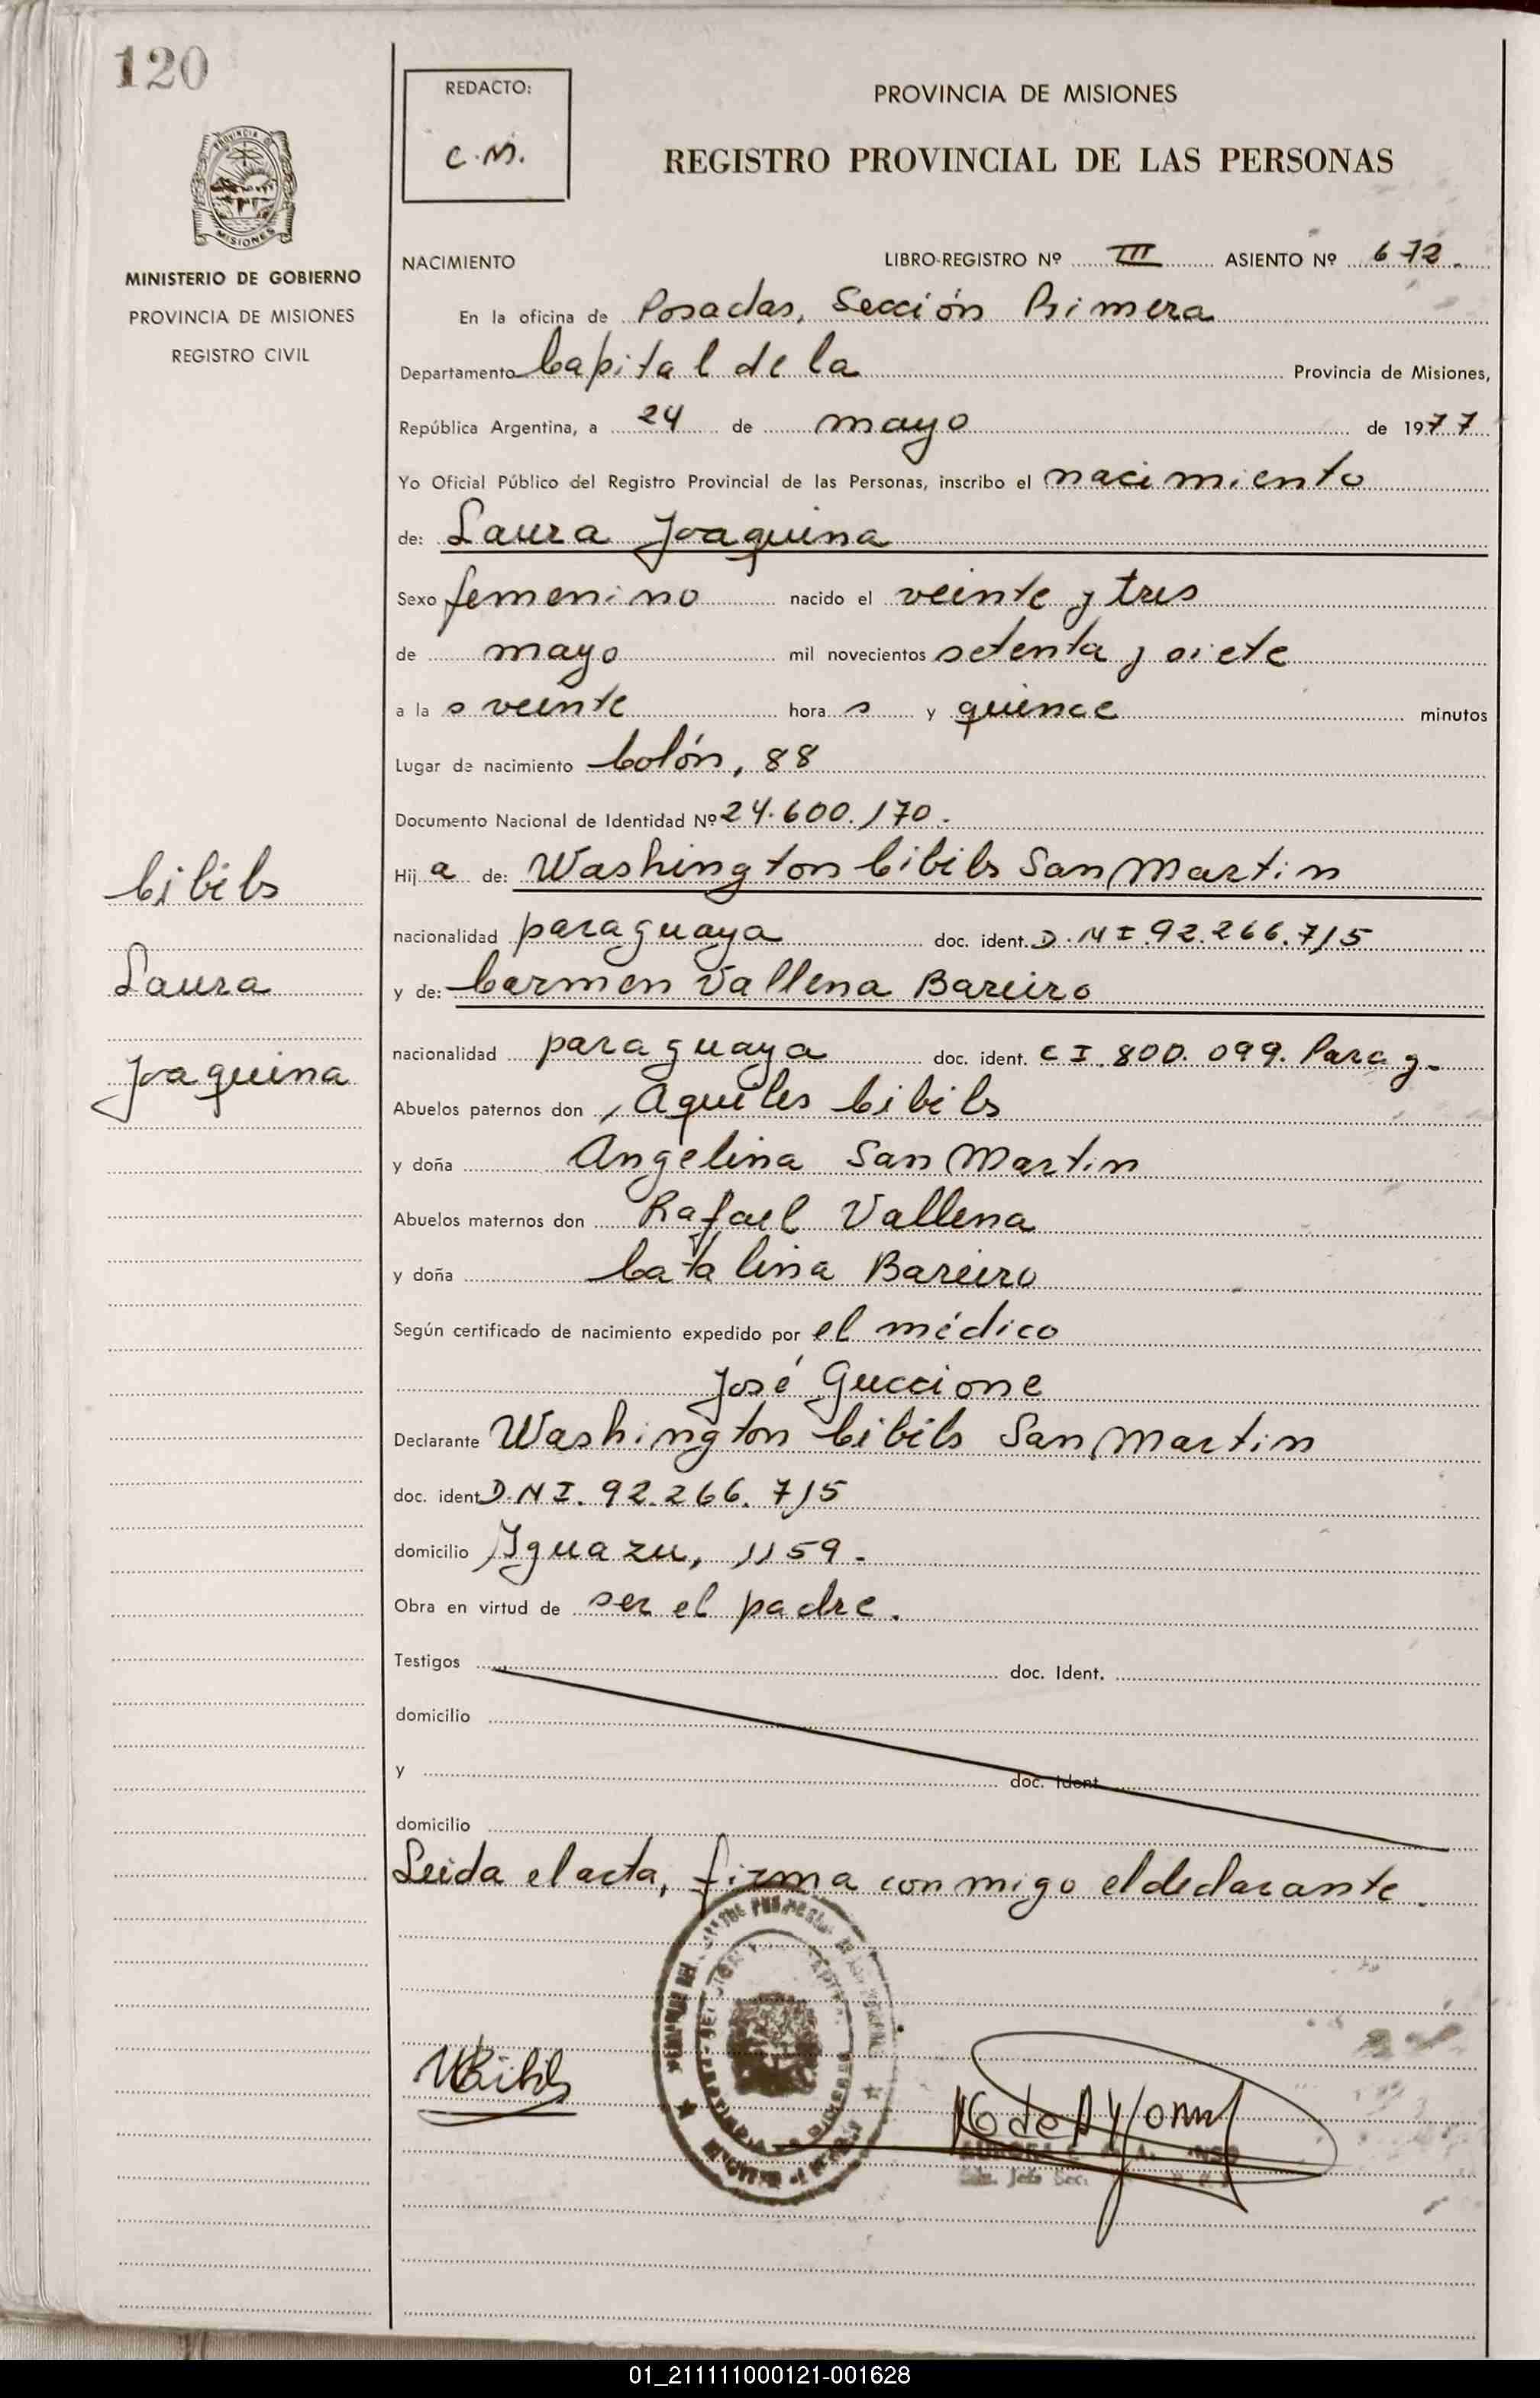 120
REDACTO:
C.M.
PROVINCIA DE MISIONES
REGISTRO PROVINCIAL DE LAS PERSONAS
PROVINCIA DE
MISIONES
MINISTERIO DE GOBIERNO
PROVINCIA DE MISIONES
REGISTRO CIVIL
NACIMIENTO LIBRO-REGISTRO Nº III ASIENTO Nº 672.
En la oficina de Posadas, Sección Primera
Departamento Capital de la Provincia de Misiones,
República Argentina, a 24 de mayo de 1977
Yo Oficial Público del Registro Provincial de las Personas, inscribo el nacimiento
de: Laura Joaquina
Sexo femenino nacido el veinte y tres
de mayo mil novecientos setenta y siete
a la s veinte hora s y quince minutos
Lugar de nacimiento Colón, 88
Documento Nacional de Identidad Nº 24.600.170.
Hij a de: Washington Cibils San Martin
nacionalidad paraguaya doc. ident. D.N I. 92.266.715
y de: Carmen Vallena Bareiro
nacionalidad paraguaya doc. ident. C I. 800.099. Parag.
Abuelos paternos don Aquiles Cibils
y doña Angelina San Martin
Abuelos maternos don Rafael Vallena
y doña Catalina Bareiro
Según certificado de nacimiento expedido por el médico
José Guccione
Declarante Washington Cibils San Martin
doc. ident D.N I. 92.266.715
domicilio Iguazu, 1159.
Obra en virtud de ser el padre.
Testigos doc. Ident.
domicilio
y doc. Ident
domicilio
Leida el acta, firma conmigo el declarante.
Cibils
Laura
Joaquina
01_211111000121-001628